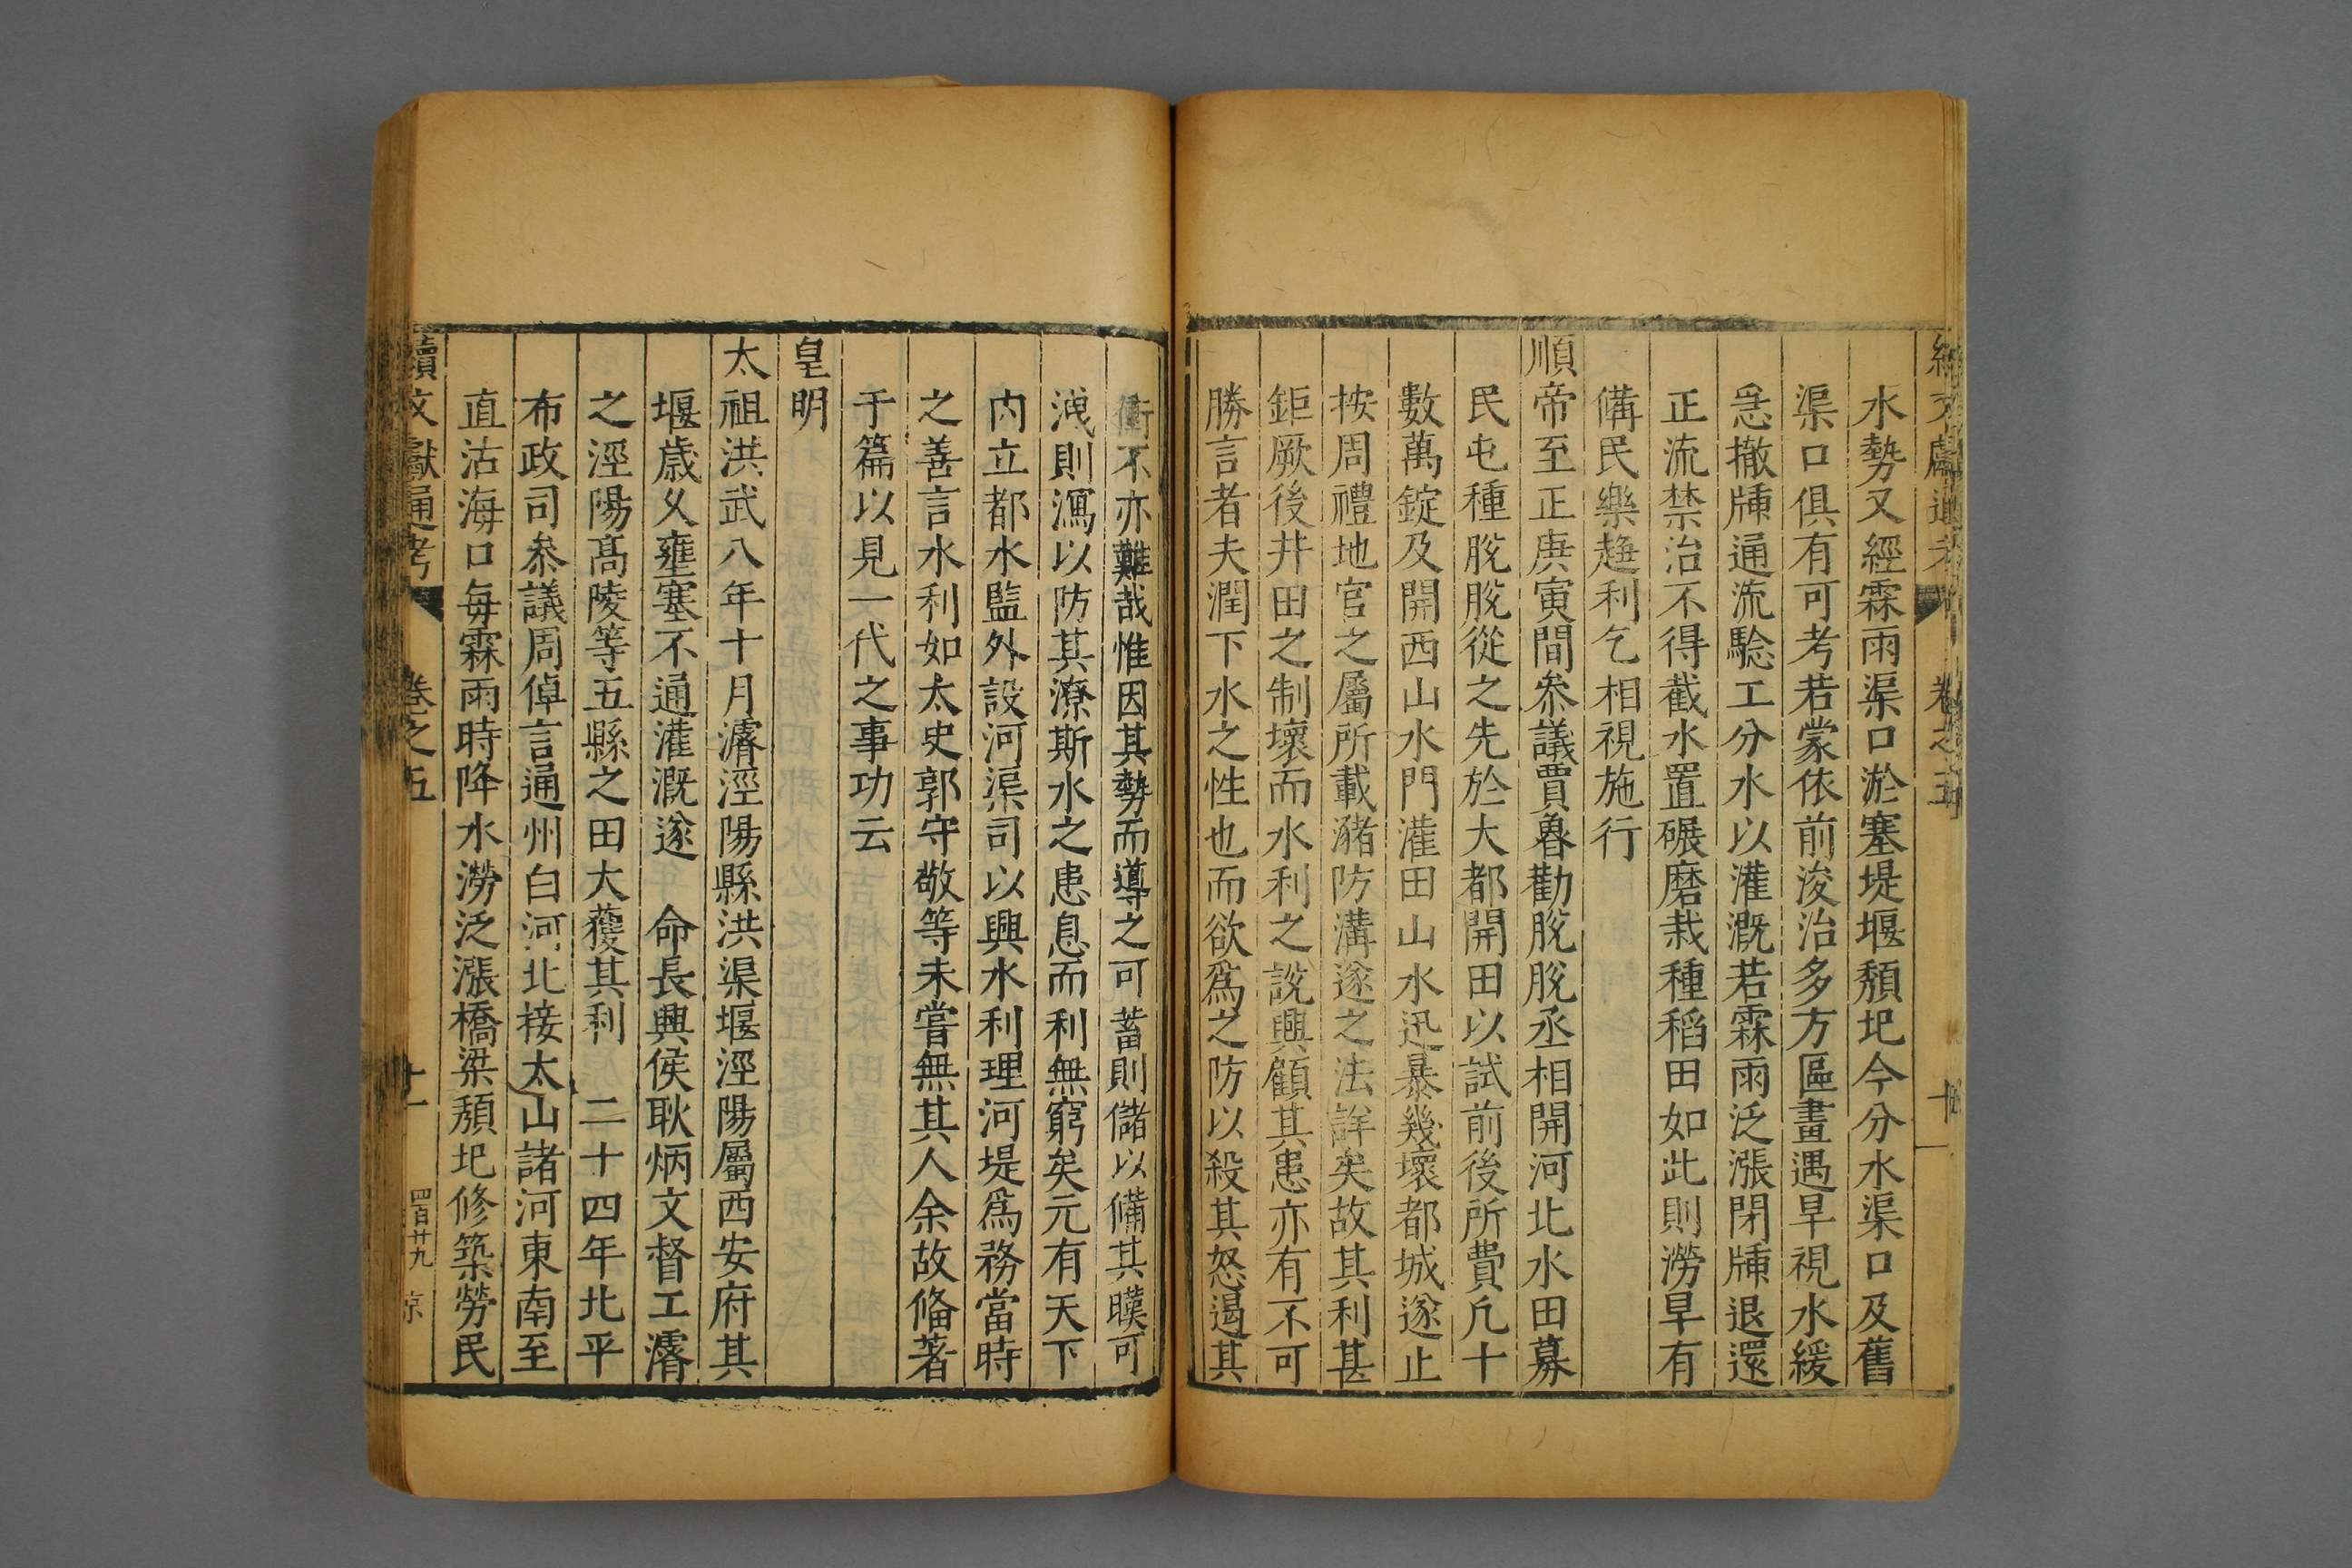 續文獻通考 卷之五 十
水勢又經霖雨渠口淤塞堤堰頹圮今分水渠口及舊
渠口俱有可考若蒙依前浚治多方區畫遇旱視水緩
急撤牐通流驗工分水以灌溉若霖雨泛漲閉牐退還
正流禁治不得截水置碾磨栽種稻田如此則澇旱有
俻民樂趍利乞相視施行
順帝至正庚寅間叅議賈魯勸脫脫丞相開河北水田募
民屯種脫脫從之先於大都開田以試前後所費凢十
數萬錠及開西山水門灌田山水迅暴幾壞都城遂止
按周禮地官之屬所載瀦防溝遂之法詳矣故其利甚
鉅厥後井田之制壞而水利之說興顧其患亦有不可
勝言者夫潤下水之性也而欲爲之防以殺其怒遏其
衝不亦難哉惟因其勢而導之可蓄則儲以俻其暵可
洩則瀉以防其潦斯水之患息而利無窮矣元有天下
内立都水監外設河渠司以興水利理河堤爲務當時
之善言水利如太史郭守敬等未嘗無其人余故俻著
于篇以見一代之事功云
皇明
太祖洪武八年十月濬涇陽縣洪渠堰涇陽屬西安府其
堰歲乆壅塞不通灌溉遂 命長興侯耿炳文督工濬
之涇陽高陵等五縣之田大獲其利 二十四年北平
布政司叅議周倬言通州白河北接太山諸河東南至
直沽海口每霖雨時降水澇泛漲橋梁頹圮修築勞民
續文獻通考 卷之五 十一 四百廿九 京